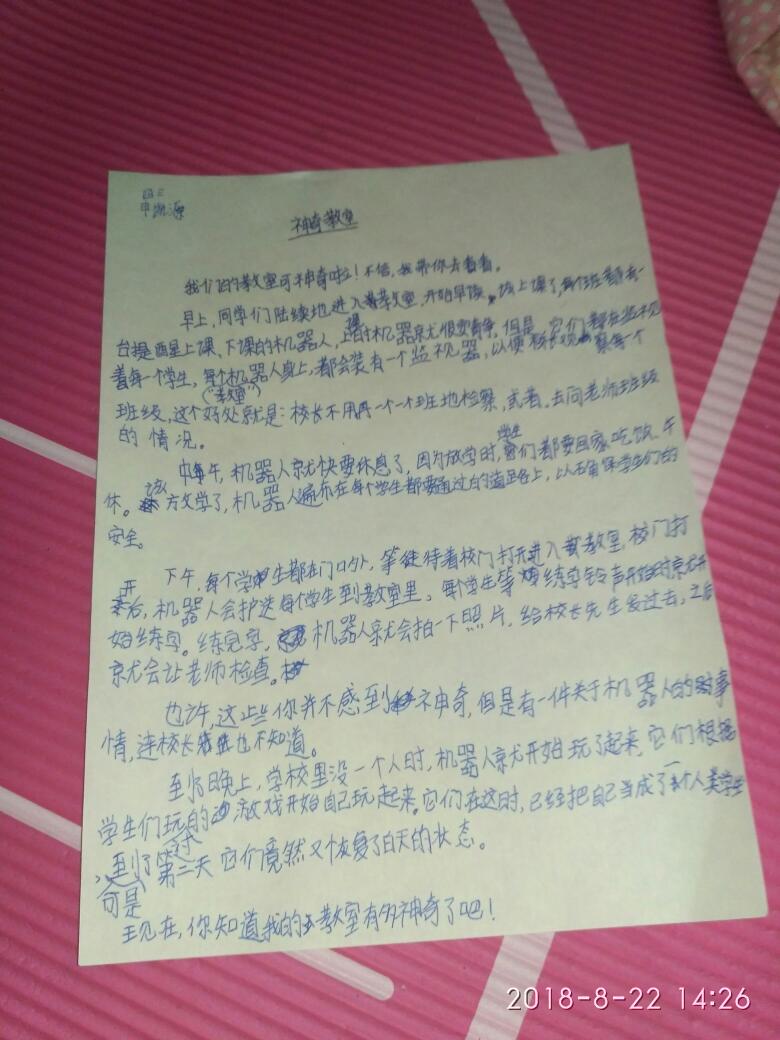 四三
申凯源
神奇教室
我们的教室可神奇啦！不信，我带你去看看。
早上，同学们陆续地进入教室，开始早读。该上课了，每个班都有一
台提醒上课、下课的机器人，上课时机器就很安静，但是，它们都在监视
着每一个学生，每个机器人身上，都会装有一个监视器，以便校长观察每一个
（教室）
班级，这个好处就是：校长不用再一个一个班地检察，或者，去问老师班级
的情况。
中午，机器人就快要休息了，因为放学时，学生们都要回家吃饭、午
休。该放学了，机器人遍布在每个学生都要通过的道路上，以确保学生们的
安全。
下午，每个学生都在门口外，等待着校门打开进入教室，校门打
开后，机器人会护送每个学生到教室里。每个学生等练字铃声开始时就开
始练字。练完字，机器人就会拍一下照片，给校长先生发过去，之后
就会让老师检查。
也许，这些你并不感到神奇，但是有一件关于机器人的事
情，连校长也不知道。
到了晚上，学校里没一个人时，机器人就开始玩了起来，它们根据
学生们玩的游戏开始自己玩起来。它们在这时，已经把自己当成了一个人类学生
，可是到了第二天它们竟然又恢复了白天的状态。
现在，你知道我的教室有多神奇了吧！
2018-8-22 14:26